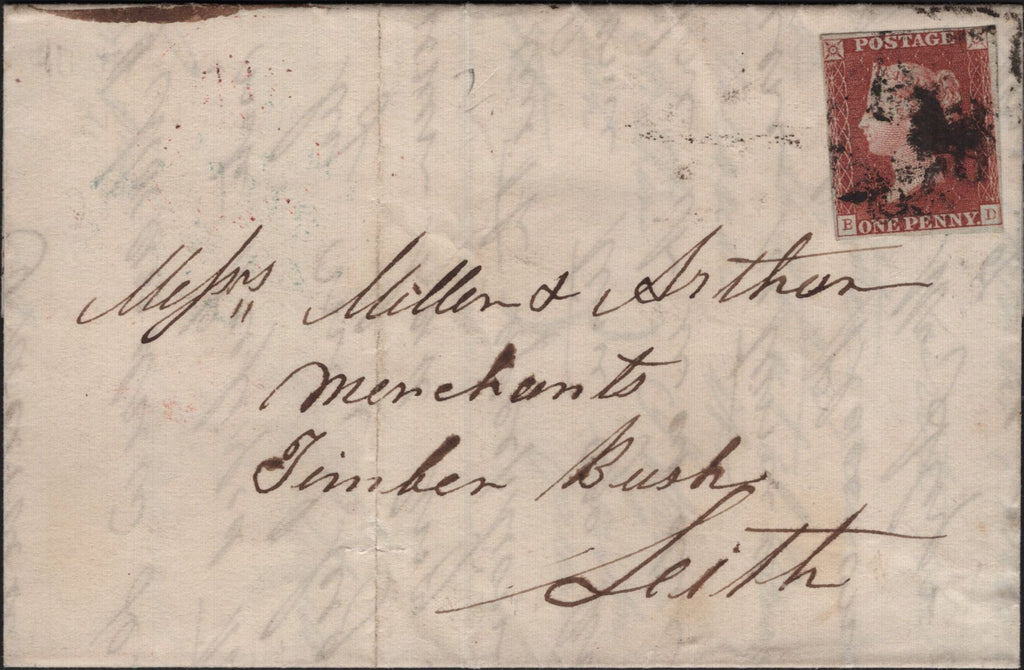 POSTAGE
B ONE PENNY. D
Messrs Miller & Arthur
Merchants
Timber Bush
Leith